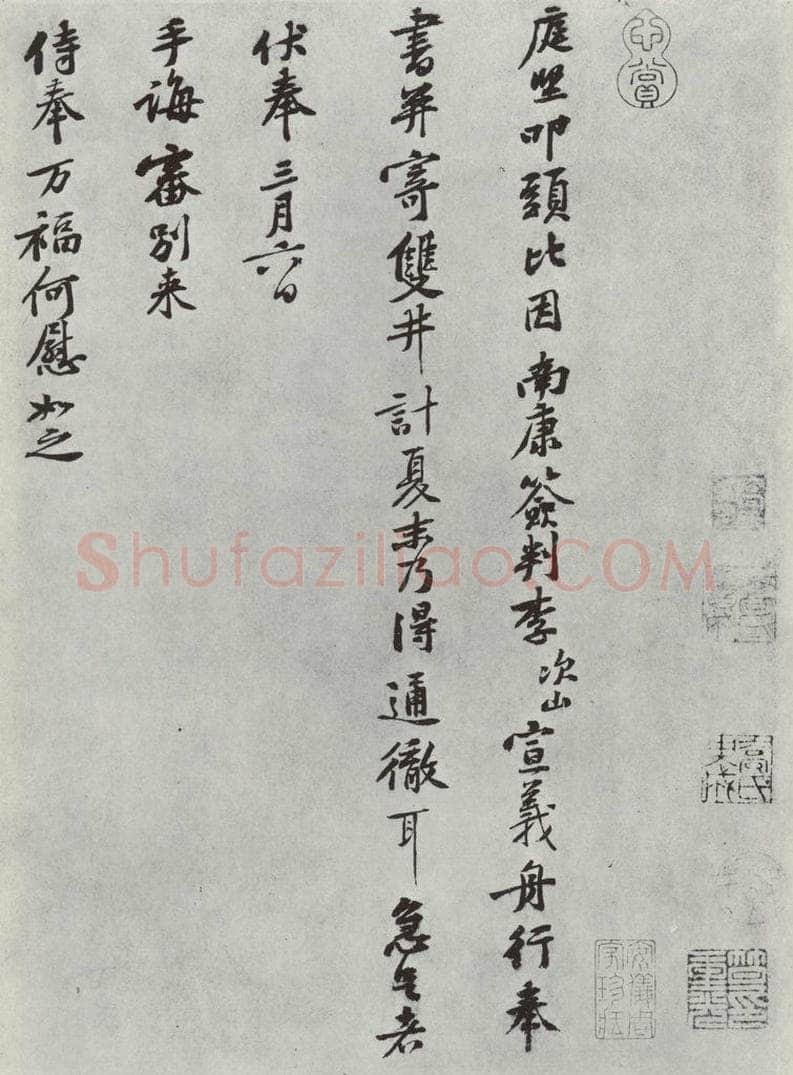 庭堅叩頭比因南康簽判李次山宣義舟行奉
書并寄雙井計夏末乃得通徹耳急足者
伏奉三月六日
手誨審別来
侍奉万福何慰如之
心賞
安儀周家珍藏
Shufaziliao.COM